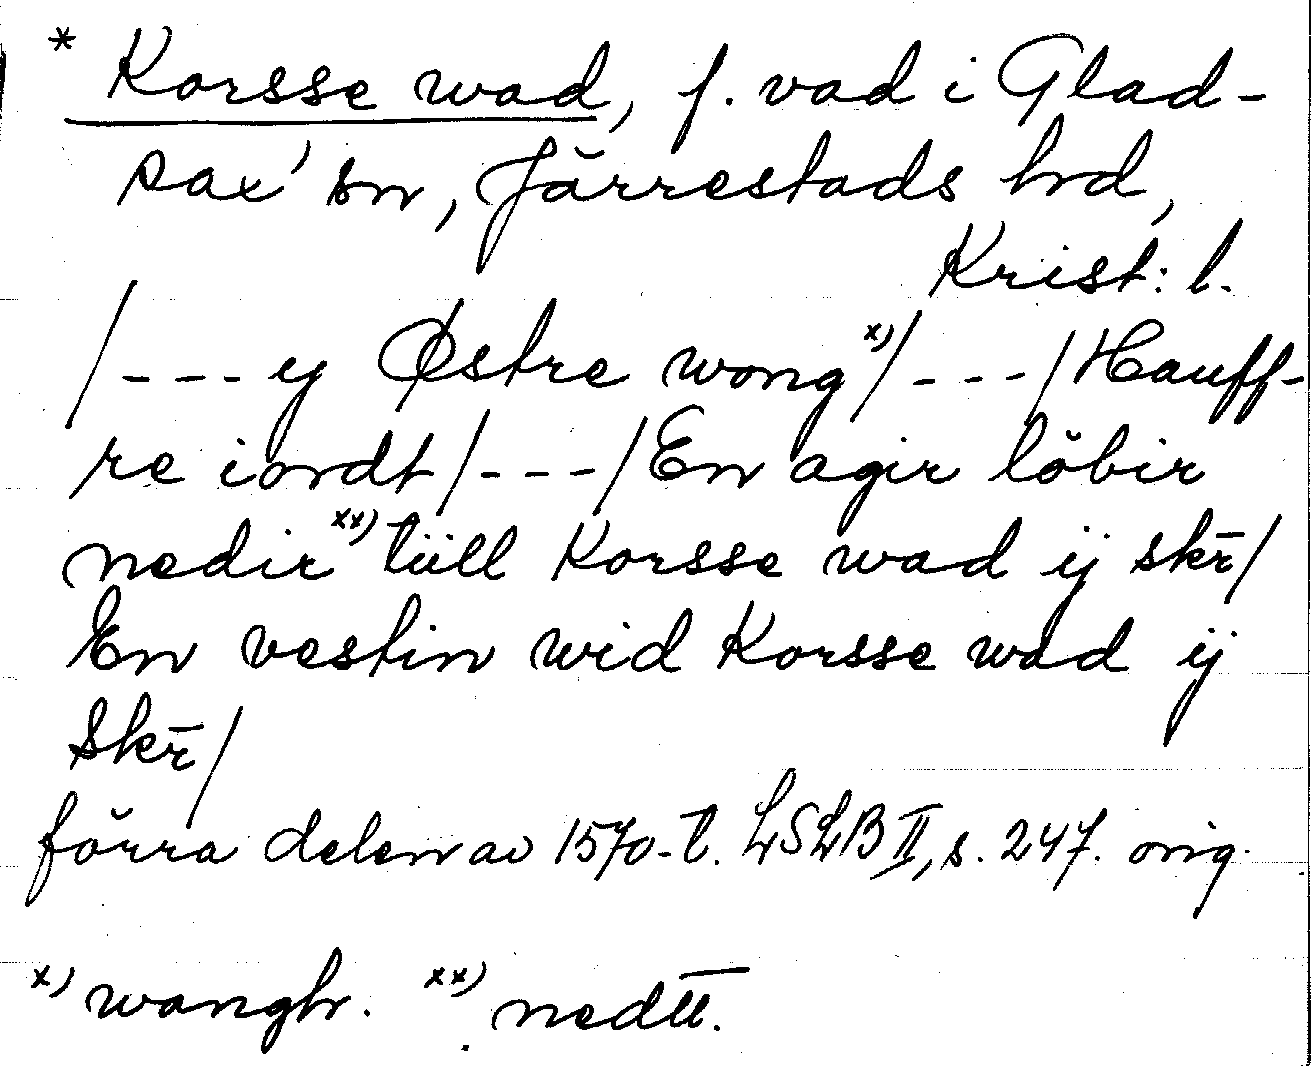 * Korsse wad, f. vad i Glad-
sax' sn, Järrestads hrd,
Krist: l.
/---ij Østre wong x)/---/Hauff-
re iordt/---/En agir löbir
nedir xx) tiill Korsse wad ij skr̄/
En vestin wid Korsse wad ij
Skr̄/
förra delen av 1570-t. LSLB II, s. 247. orig.
x) wangh. xx) nedtt̄.